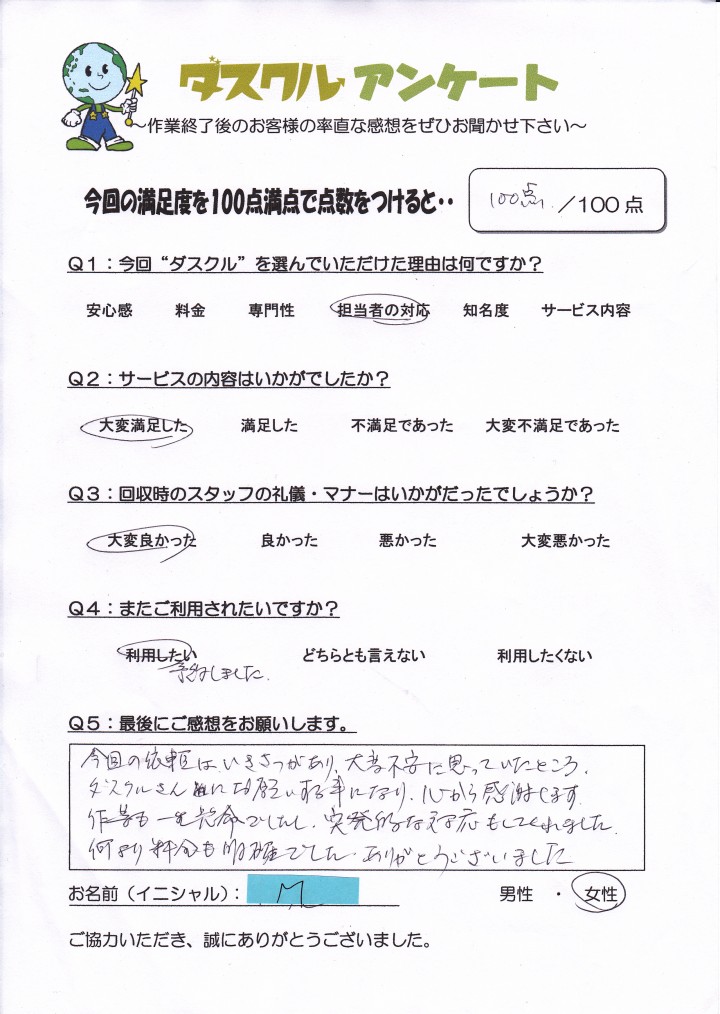 ダスクル アンケート
～作業終了後のお客様の率直な感想をぜひお聞かせ下さい～
今回の満足度を100点満点で点数をつけると‥ 100点 ／100点
Q1：今回“ダスクル”を選んでいただけた理由は何ですか？
安心感 料金 専門性 担当者の対応 知名度 サービス内容
Q2：サービスの内容はいかがでしたか？
大変満足した 満足した 不満足であった 大変不満足であった
Q3：回収時のスタッフの礼儀・マナーはいかがだったでしょうか？
大変良かった 良かった 悪かった 大変悪かった
Q4：またご利用されたいですか？
利用したい どちらとも言えない 利用したくない
予約しました.
Q5：最後にご感想をお願いします。
今回の依頼は、いきさつがあり、大変不安に思っていたところ、
ダスクルさんにお願いする事になり、心から感謝します
作業も一生懸命でしたし、突発的な対応もしてくれました.
何より料金も明確でした. ありがとうございました
お名前（イニシャル）： M 男性 ・ 女性
ご協力いただき、誠にありがとうございました。